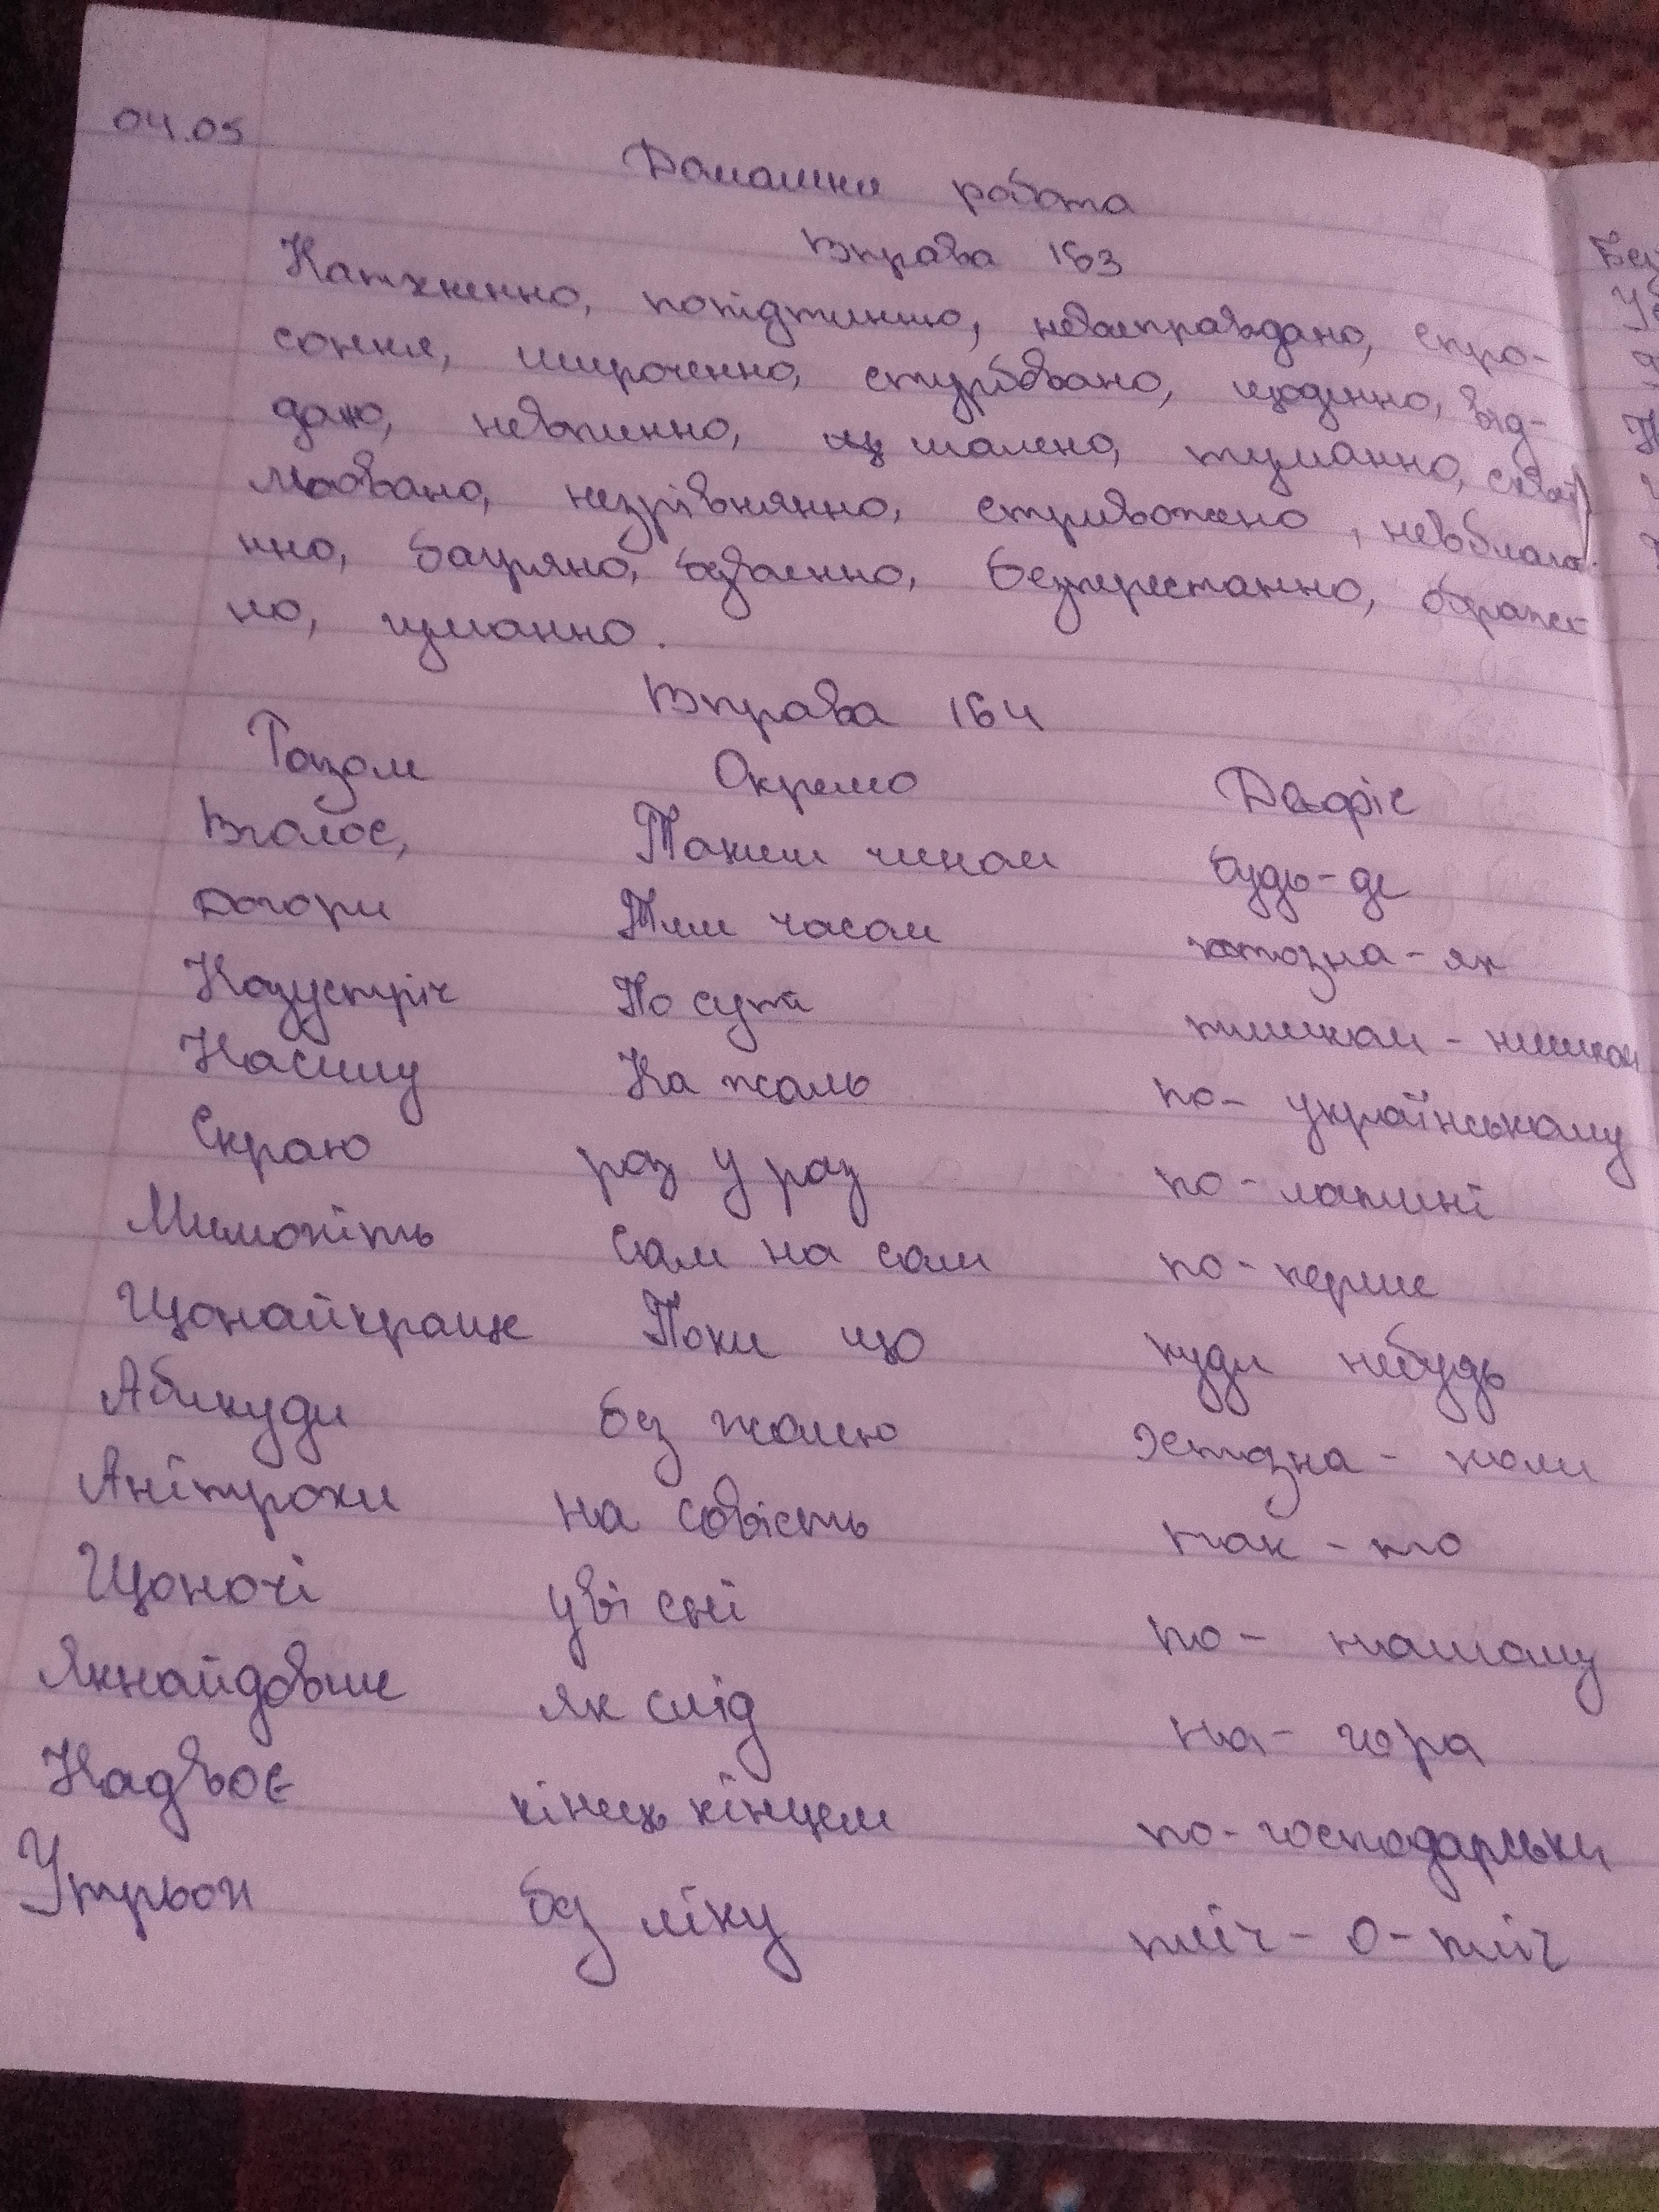 04.05
Домашня робота
Вправа 163
Натхненно, попідтинню, невиправдано, спро-
соння, широченно, стурбовано, щоденно, від-
дано, невпинно, шалено, туманно, схви
льовано, незрівнянно, стривожено, невблага
нно, багряно, буденно, безперестанно, ображе
но, гуманно.
Вправа 164
Разом Окремо Дефіс
Вголос, Таким чином будь-де
Догори Тим часом хтозна-як
Назустріч По суті тишком-нишком
Насилу На жаль по-українському
Скраю раз у раз по-латині
Мимохіть Сам на сам по-перше
Щонайкраще Поки що куди небудь
Абикуди без жалю хтозна-коли
Анітрохи на совість так-то
Щоночі уві сні по-нашому
Якнайдовше як слід на-гора
Надвоє кінець кінцем по-господарськи
Утрьох без ліку пліч-о-пліч